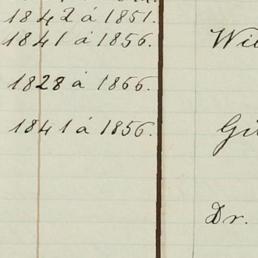 1842 á 1851.
1841 á 1856.
1828 á 1866.
1841 á 1856.
Dr.